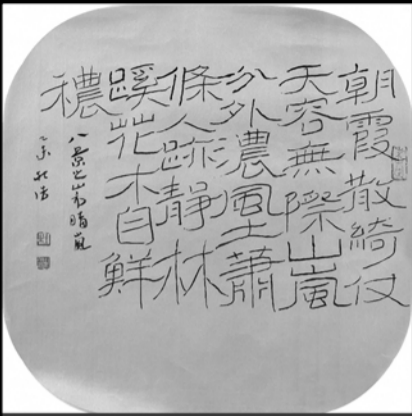 朝霞散綺仗
天容無際山嵐
分外濃風土蕭
條人跡靜林
蹊花木自鮮
穠
八景之山市晴嵐